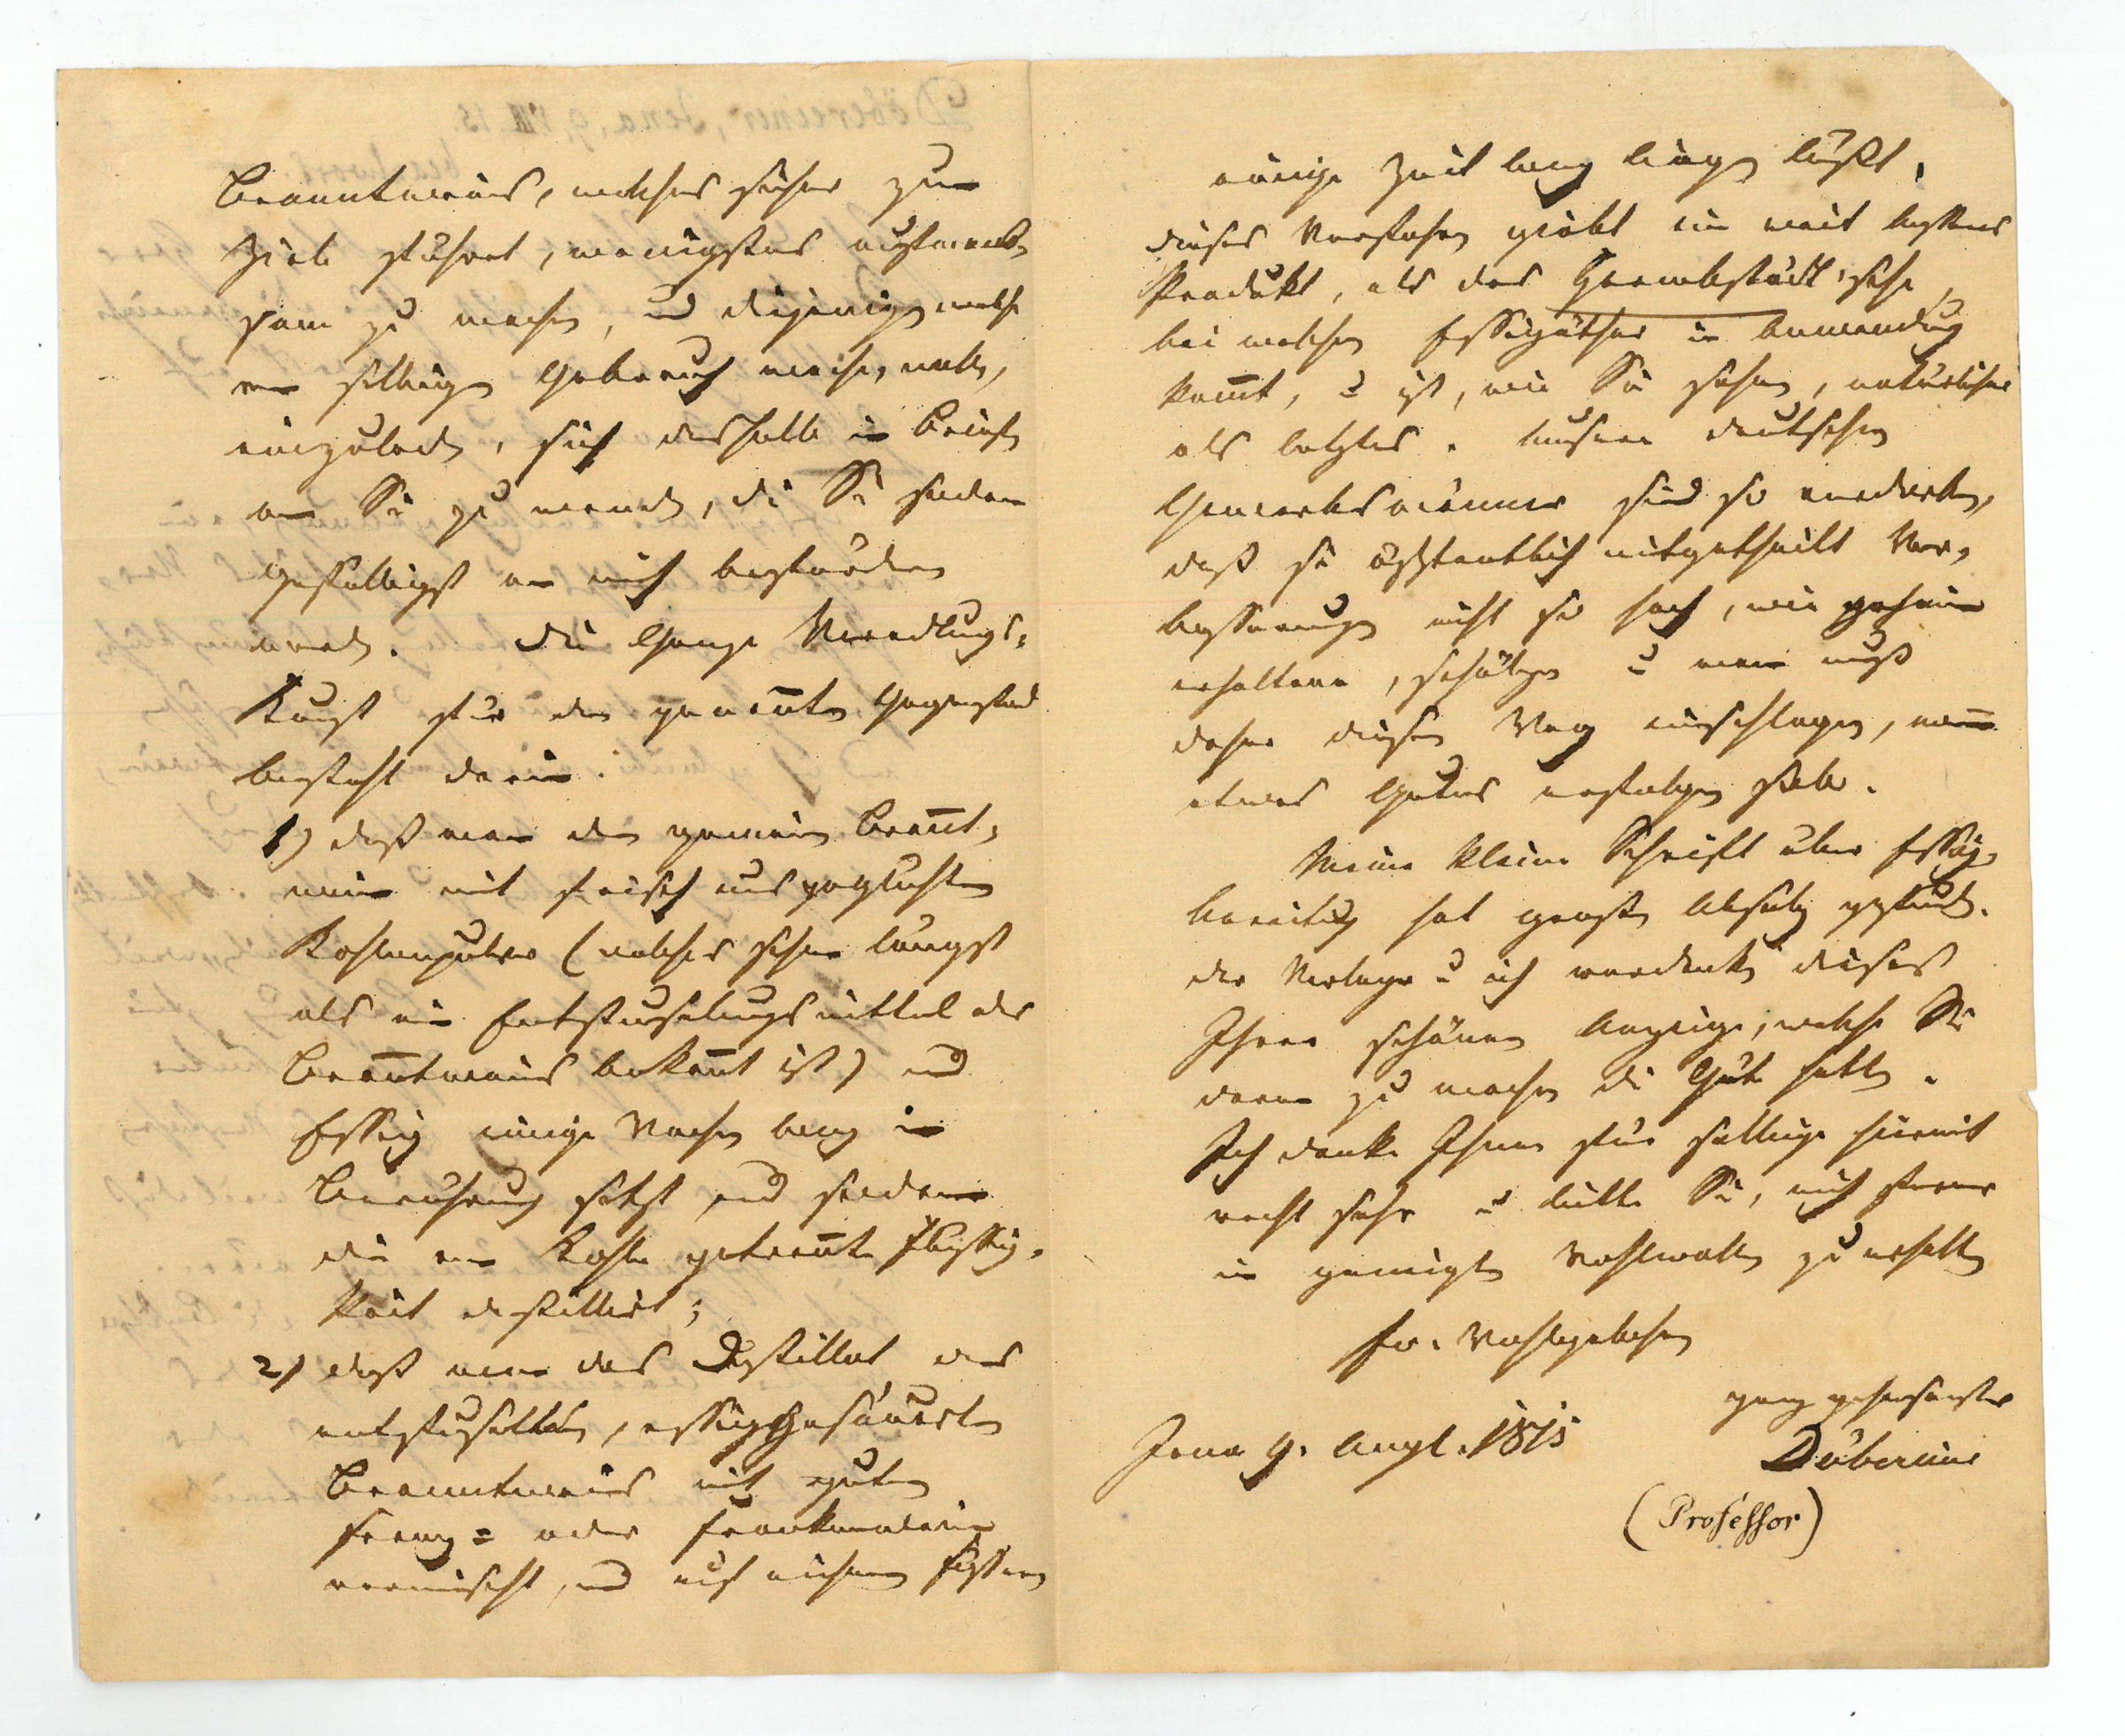 Branntweins, welches sicher zum
Ziele führet, wenigstens aufmerk-
sam zu machen, und diejenigen welche
von selbigen Gebrauch machen wollen,
einzuladen, sich deshalb in Briefen
an Sie zu wenden, die Sie sodann
gefälligst an mich befördern
werden. Die Ganze Veredlungs-
Kunst für den genannten Gegenstand
besteht darin:
1) daß man den gemeinen Brannt-
wein mit frisch ausgeglühten
Kohlenpulver (welches schon längst
als ein Entfuselungsmittel des
Branntweins bekannt ist) und
Essig einige Wochen lang in
Berührung setzt und sodann
die von Kohle getrennte Flüssig-
keit destillirt;
2) daß man das Destillat des
entfuselten, essiggesäuerten
Branntweins mit guten
Franz- oder Frankenwein
vermischt, und auf eichenen Fässern
einige Zeit lang liegen läßt.
Dieses Verfahren giebt ein weit besseres
Produkt, als das Hermbstädt'sche,
bei welchen Essigäther in Anwendung
kommt, u ist, wie Sie sehen, natürlicher
als letztes. Unsere deutschen
Gewerbsmänner sind so
daß sie öffentlich mitgetheilt Ver-
besserungen nicht so hoch, wie geheim
erhaltene, schätzen u man muß
daher diesen Weg einschlagen, wenn
etwas Gutes erfolgen soll.
Meine kleine Schrift über Essig-
bereitung hat großen Absatz gefunden.
Der Verleger u ich verdanken dieses
Ihrer schönen Anzeige, welche Sie
davon zu machen die Güte hatten.
Ich danke Ihnen für selbige hiermit
recht sehr u bitte Sie, mich ferner
in geneigten Wohlwollen zu erhalten
Ew. Wohlgebohren
ganz gehorsamster
Jena 9. Augt. 1815
Döbereiner
(Professor)
Döbereiner, Jena, 9. VIII. 15.